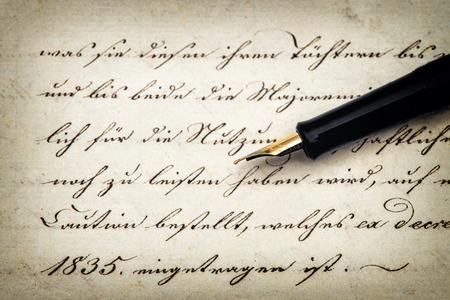 was sie diesen ihren Töchtern bis
und bis beide die
lich für die
noch zu leisten haben wird, auf
Caution bestellt, welches ex decre
1835. eingetragen ist. ~